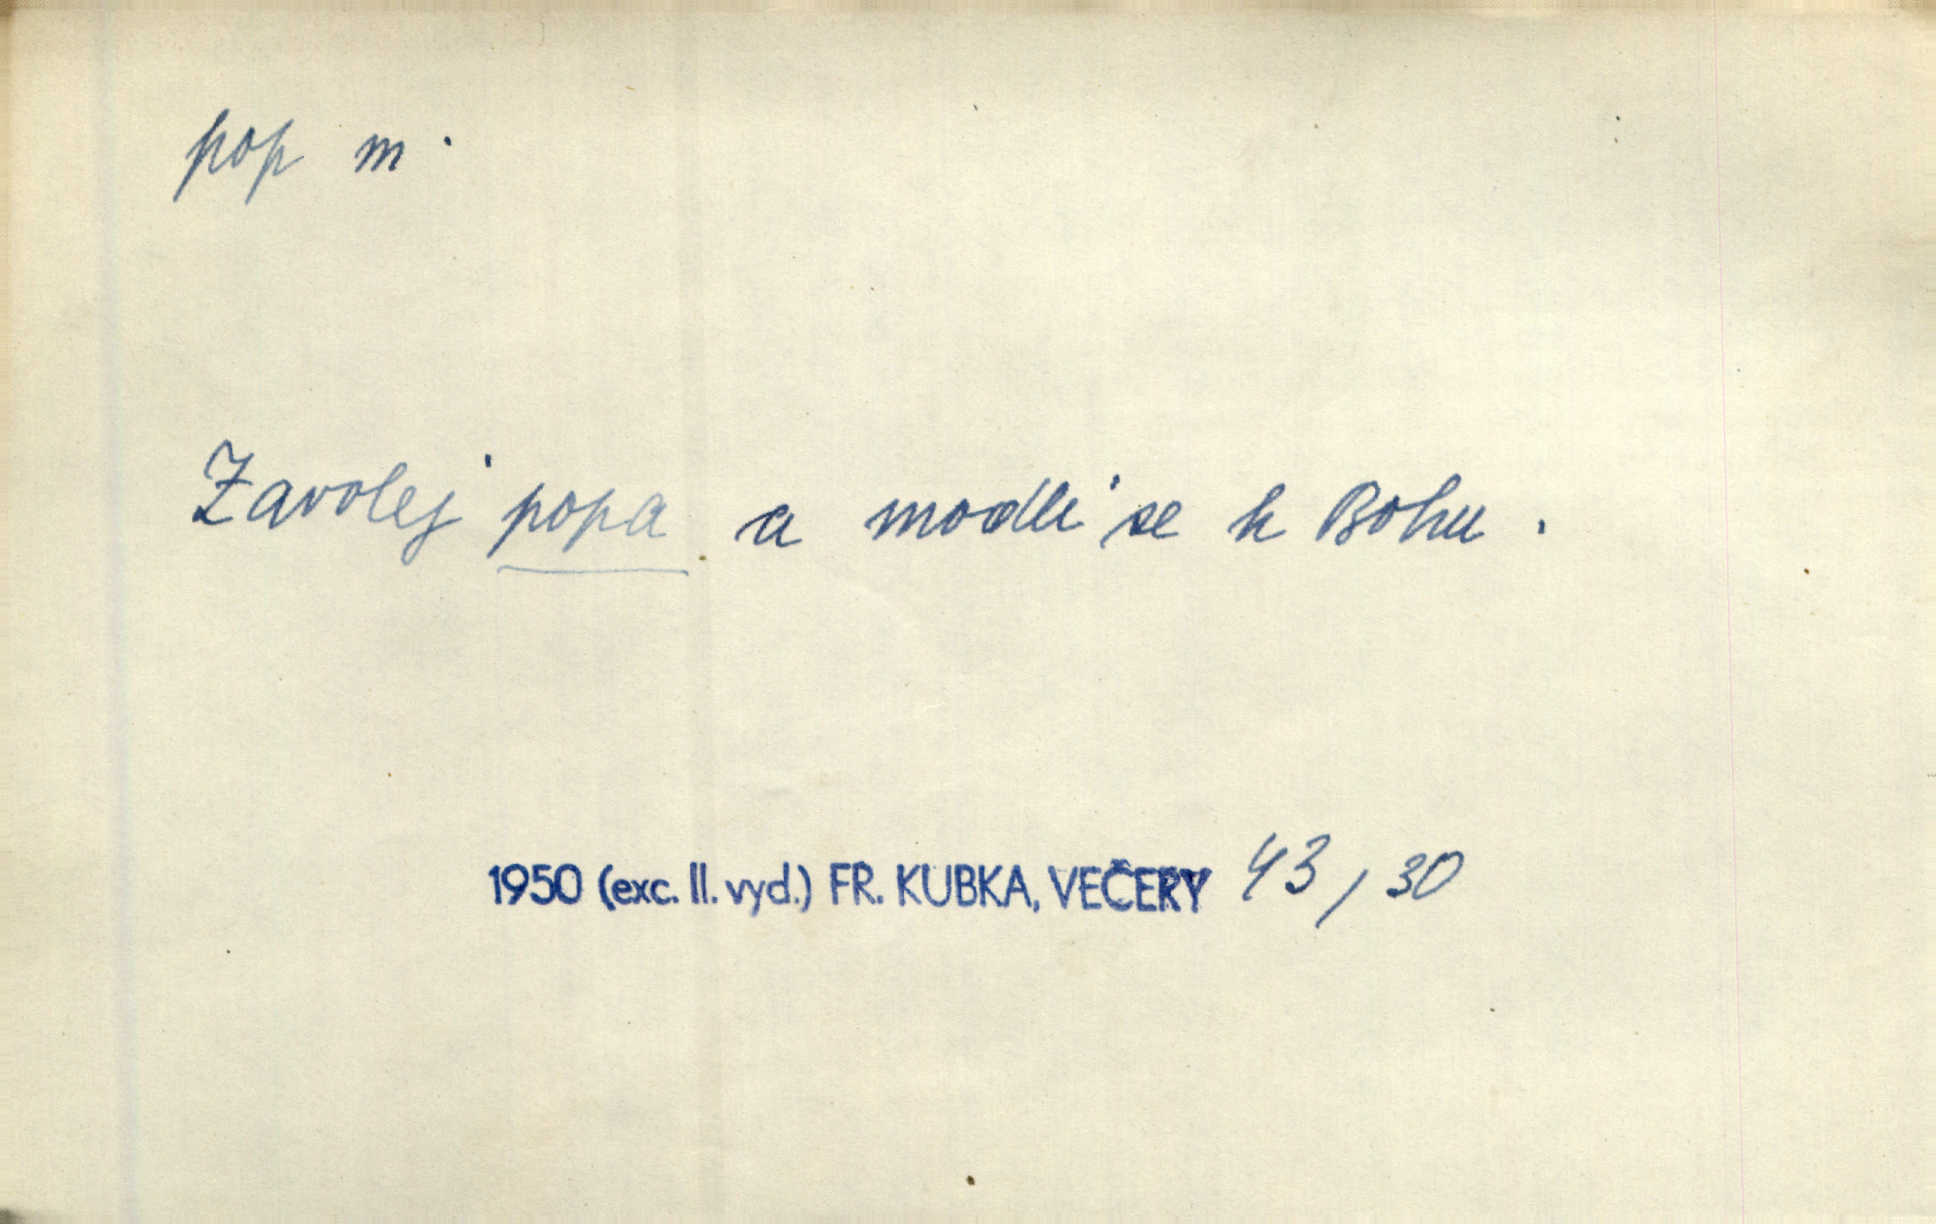 pop m.
Zavolej popa a modli se k Bohu.
1950 (exc. II. vyd.) FR. KUBKA, VEČERY 43/30